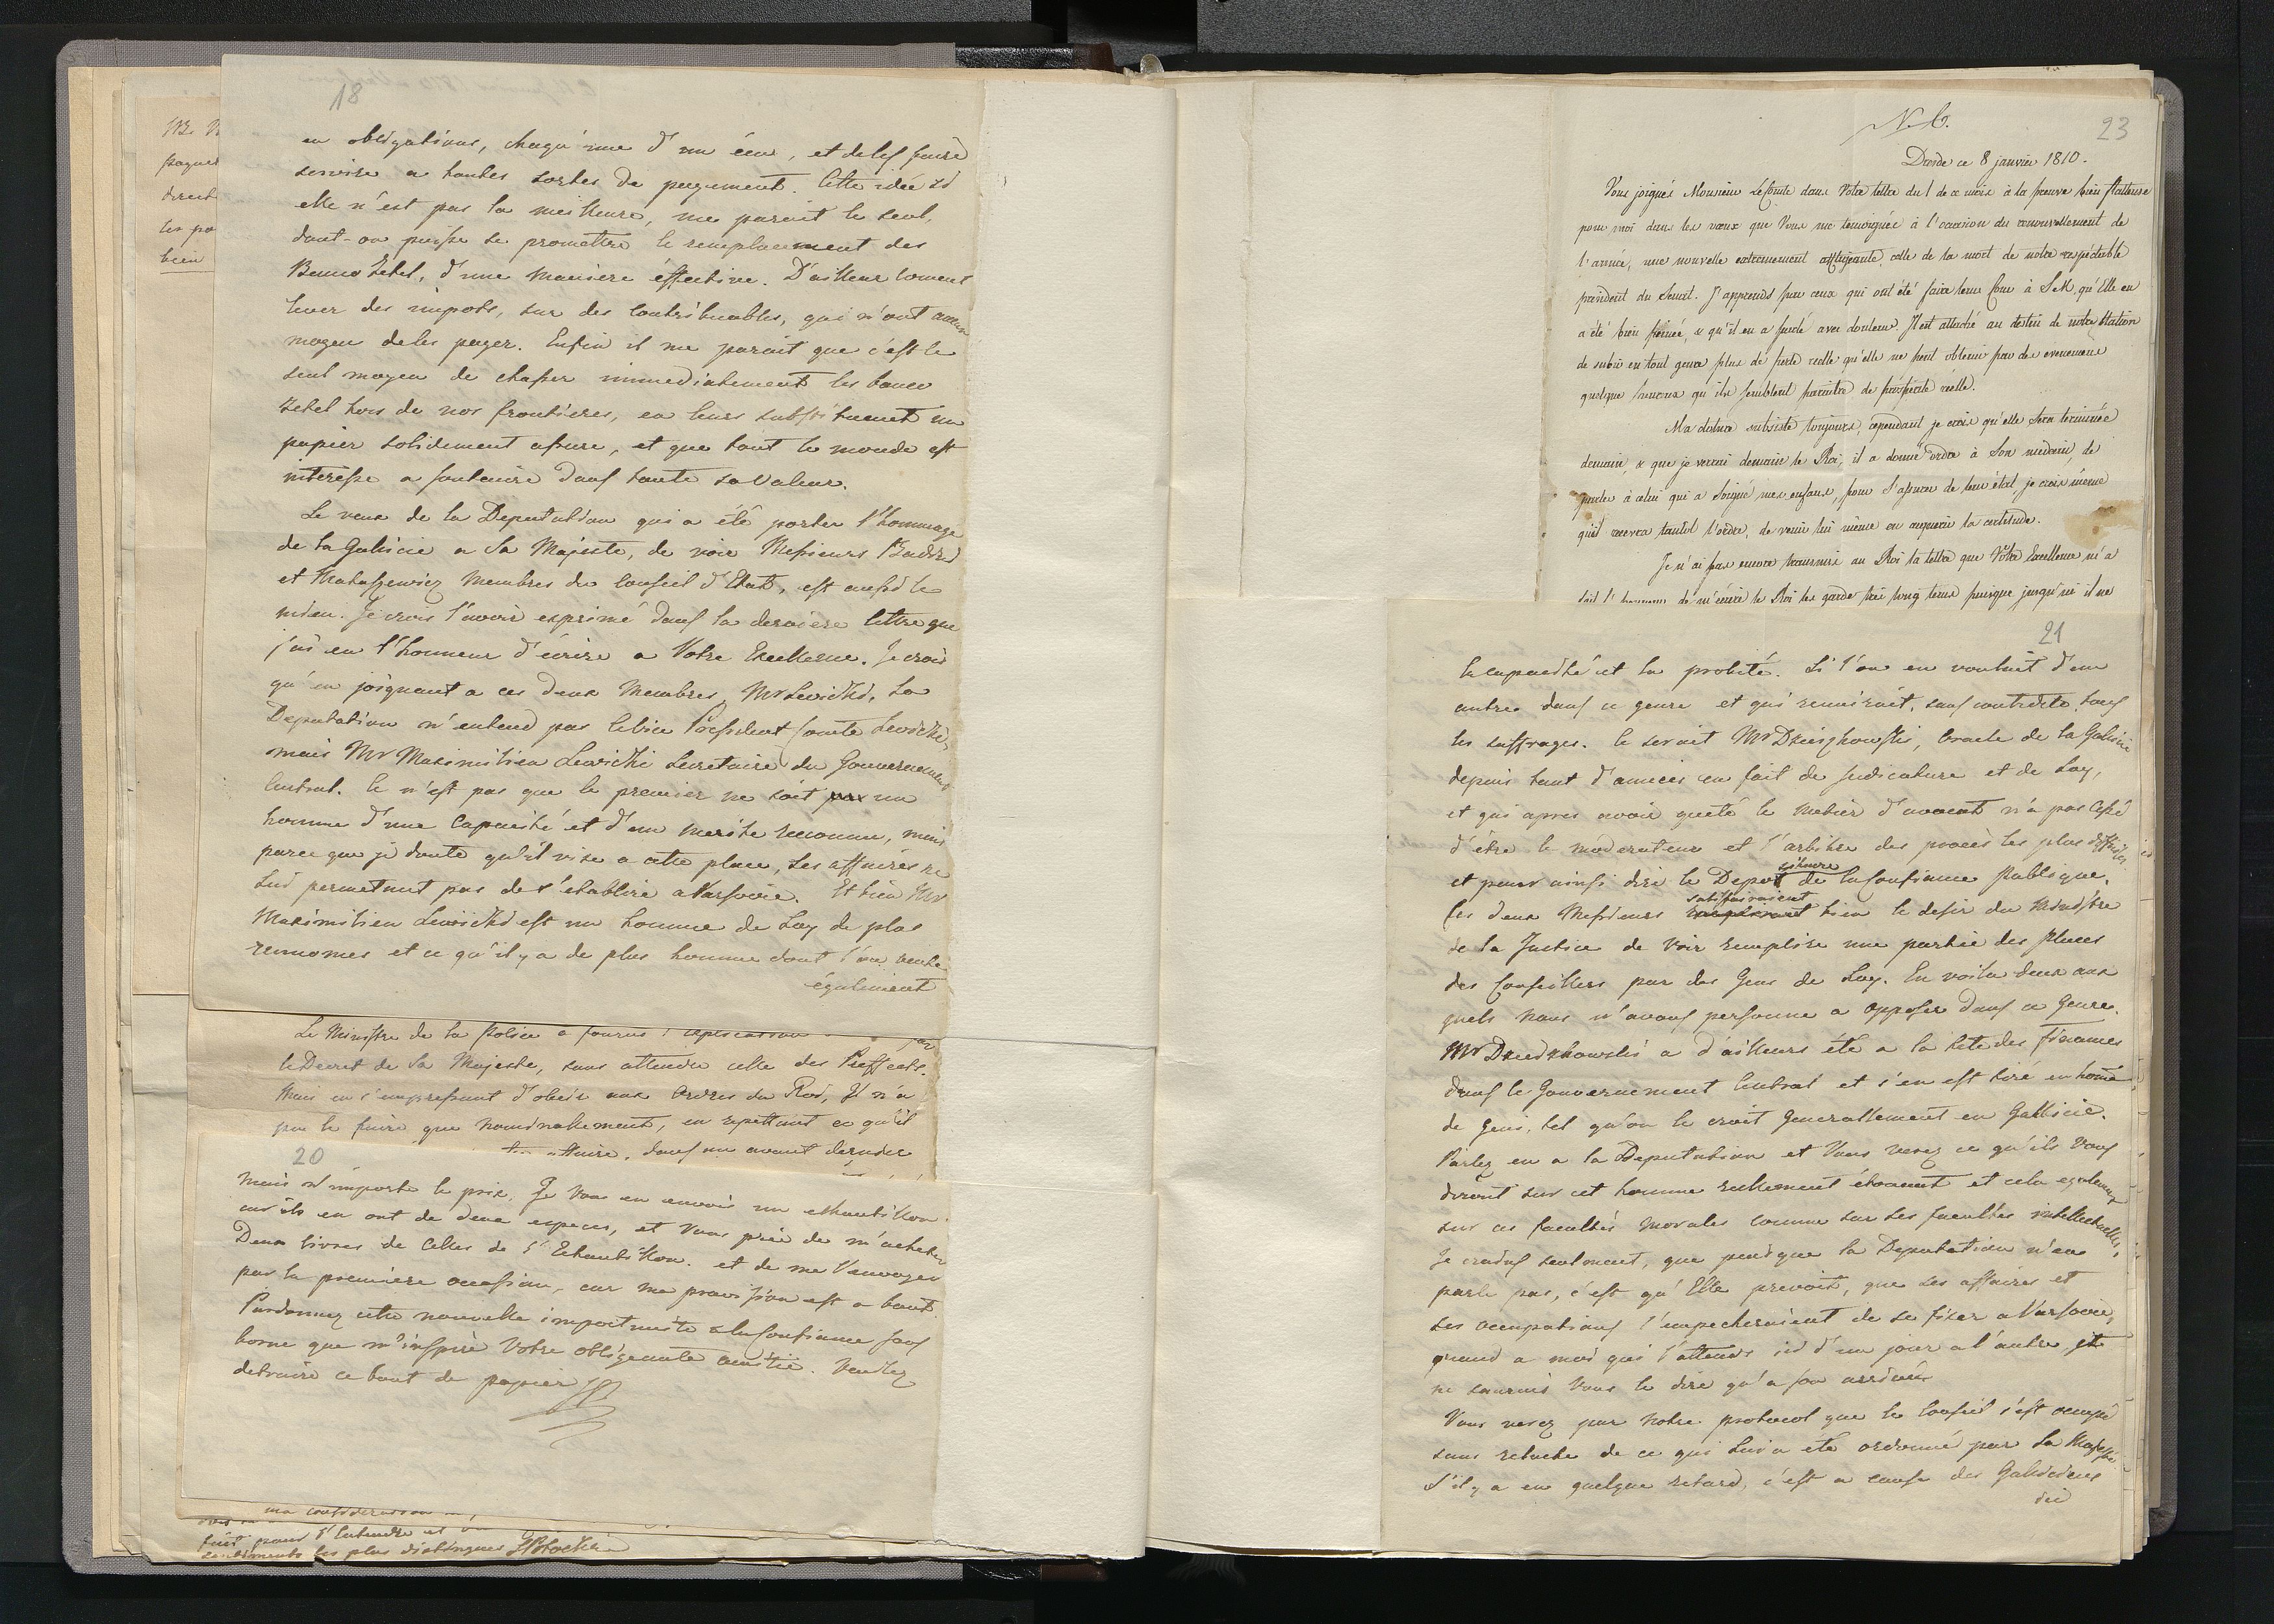 18
en obligations, chaqu'une d'un écu, et de les faire
servire a toutes sortes de payement. Cette idée si
elle n'est pas la meilleure, me parait le seul,
dont-on puisse se promettre le remplacement des
Banco Zetel, d'une maniere éffective. D'ailleur coment
lever des impots, sur des contribuables, qui n'ont aucun
moyen de les payer. Enfin il me parait que c'est le
seul moyen de chasser immediatement les banco
zetel hors de nos frontieres, en leurs substituant un
papier solidement assure, et que tout le monde est
interesse a soutenire dans toute sa valeur.
Le veux de la Deputation qui a été porter l'hommage
de la Galicie a Sa Majeste, de voir Messieurs Badeni
et Mataszewicz Membres du Conseil d'Etat, est aussi le
mien. Je crois l'avoir exprimé dans la derniere lettre que
j'ai eu l'honneur d'écrire a Votre Excellence. Je crois
qu'en joignant a ces deux Membres, Mr Lewicki, La
Deputation n'entend pas le Vice President Comte Lewicki,
mais Mr Maximilien Lewicki Secretaire du Gouvernement
Central. Ce n'est pas que le premier ne soit pas un
homme d'une Capacité et d'un merite reconnu, mais
parce que je doute qu'il vise a cette place, Ses affaires ne
Lui permetant pas de s'etablire a Varsovie. Et bien Mr
Maximilien Lewicki est un homme de Loy de plus
rennomes et ce qu'il y a de plus homme dont l'on vente
également
Le Ministre de la Police a
le Decret de Sa Majeste, sans attendre celle des Preffects.
Mais en s'empressant d'obeir aux Ordres du Roi, Il n'a
pu le faire que nominalement, en repettant ce qu'il
dans un avant dernier
20
Mais n'importe le prix. Je Vous en envois un echantillon.
car ils en ont de deux especes, et Vous prie de m'acheter
Deux livres de Celles de l'Echantillon. et de me l'envoyer
par la premiere occasion, car ma provision est a bout
Pardonnez cette nouvelle importunite a la Confiance sans
borne que m'inspire Votre obligeante amitié. Veuillez
detruire ce bout de papier
ma consideration
pour l'entendre et
sentiments les plus distingues SPotocki
N. 6.
23
Dresde ce 8 janvier 1810.
Vous joignés Monsieur le Comte dans Votre lettre du 1 de ce mois à la preuve bien flatteuse
pour moi dans les vœux que Vous me temoignés à l'occasion du renouvellement de
l'année, une nouvelle extremement affligeante, celle de la mort de notre respéctable
president du Senat. J'apprends par ceux qui ont été faire leur Cour à S M, qu'Elle en
a été bien peinée, & qu'il en a parlé avec douleur. Il est attaché au destin de notre Nation
de subir en tout genre plus de perte reelle qu'elle ne peut obtenir par des evenemens
quelque heureux qu'ils semblent paroitre de prosperité réelle.
Ma cloture subsiste toujours, cependant je crois qu'elle sera terminée
demain, & que je verrai demain le Roi; il a donné ordre à Son medecin, de
parler à celui qui a soigné mes enfans, pour s'assurer de leur état, je crois même
qu'il recevra tantot l'ordre, de venir lui même en acquerir la certitude.
Je n'ai pas encore transmis au Roi la lettre que Votre Excellence m'a
fait l'honneur de m'écrire le Roi les garde très long tems puisque jusqu'ici il ne
21
la capacité et la probité. Si l'on en voulait d'un
autre dans ce genre et qui reunirait, sans contredite tous
les suffrages. Ce serait Mr Dzierzkowski, Oracle de la Galicie
depuis tant d'années en fait de Judicature et de Loy,
et qui apres avoir quité le metier d'avocat n'a pas cessé
d'être le moderateur et l'arbitre des procès les plus difficiles
et pour ainsi dire le Depot sincere de la Confiance Publique.
Ces deux Messieurs satisfairaient bien le desir du Ministre
de la Justice de Voir remplire une partie des places
des Conseillers par des Gens de Loy. En voila deux aux
quels nous n'avons personne a opposer dans ce Genre.
Mr Dzierzkowski a d'ailleurs été a la tete des finances
dans le Gouvernement Central et s'en est tiré en home
de Genie, tel qu'on le croit Generallement en Gallicie.
Parlez en a la Deputation et Vous verez ce qu'ils Vous
diront sur cet homme reellement étonnant et cela egalement
sur ces facultés morales comme sur ses facultés intellectuelles,
Je crains seulement, que puisque la Deputation n'en
parle pas, c'est qu'Elle prevoit, que ses affaires et
ses occupations l'empecheraient de se fixer a Varsovie,
quand a moi qui l'attends ici d'un jour a l'autre je
ne saurais Vous le dire qu'a son arrivée
Vous verez par notre protocol que le Conseil s'est occupé
sans relache de ce qui Lui a été ordonné par Sa Majesté
S'il y a eu quelque retard, c'est a cause des Galiciens